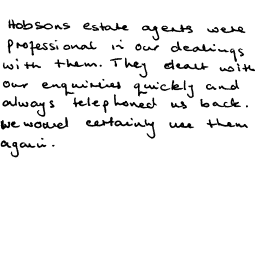 Hobsons estate agents were
professional in our dealings
with them. They dealt with
our enquiries quickly and
always telephoned us back.
We would certainly use them
again.